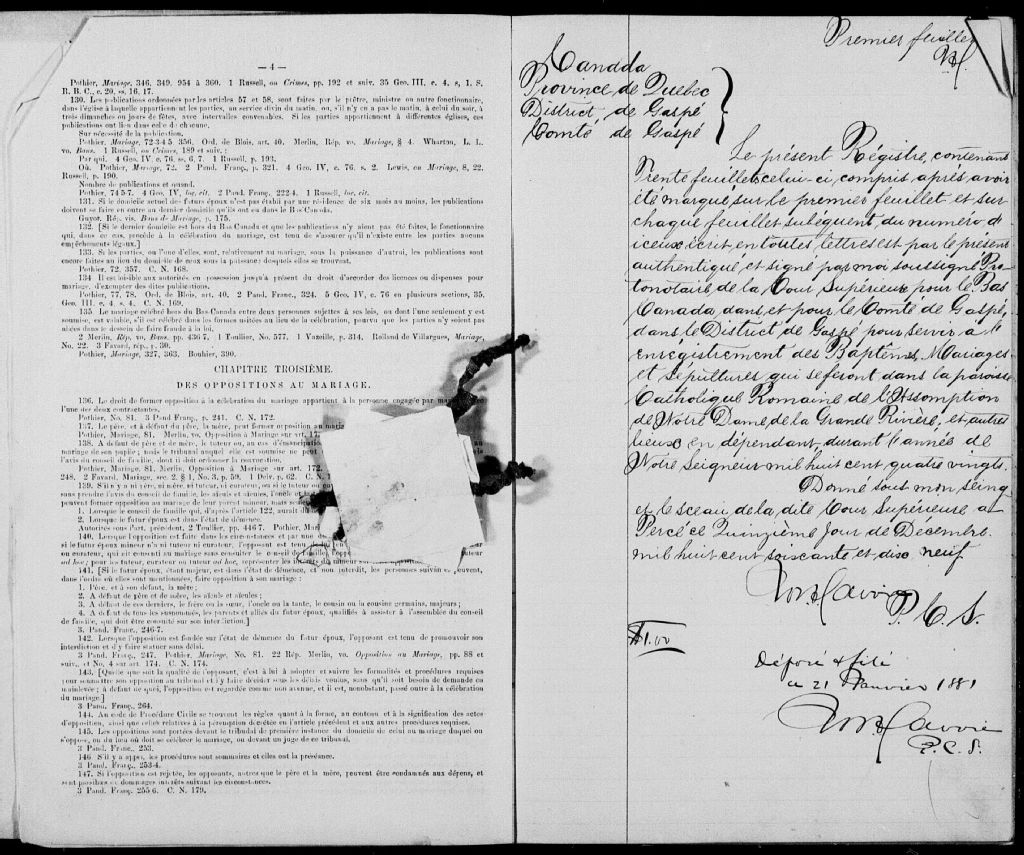 — 4 —
Pothier, Mariage, 346, 349, 954 à 360. 1 Russell, on Crimes, pp. 192 et suiv. 35 Geo. III, c. 4, s, 1, S.
R. B. C., c. 20, ss. 16, 17.
130. Les publications ordonnées par les articles 57 et 58, sont faites par le prêtre, ministre ou autre fonctionnaire,
dans l'église à laquelle appartiennent les parties, au service divin du matin, ou, s'il n'y en a pas le matin, à celui du soir, à
trois dimanches ou jours de fêtes, avec intervalles convenables. Si les parties appartiennent à différentes églises, ces
publications ont lieu dans celle de chacune.
Sur nécessité de la publication.
Pothier, Mariage, 72-3-4-5 356. Ord. de Blois, art. 40. Merlin, Rép. vo. Mariage, § 4. Wharton, L. L.
vo. Bans. 1 Russell, on Crimes, 189 et suiv. :
Par qui. 4 Geo. IV, c. 76, ss. 6, 7. 1 Russell, p. 193.
Où. Pothier, Mariage, 72. 2 Pand. Franç., p. 321. 4 Geo. IV, c. 76. s. 2. Lewis, on Mariage, 8, 22,
Russell, p. 190.
Nombre de publications et quand.
Pothier, 74-5-7. 4 Geo. IV, loc. cit. 2 Pand. Franç., 222-4. 1 Russell, loc. cit.
131. Si le domicile actuel des futurs époux n'est pas établi par une résidence de six mois au moins, les publications
doivent se faire en outre au dernier domicile qu'ils ont eu dans le Bas Canada.
Guyot. Rép. vis. Bans de Mariage, p. 175.
132. [Si le dernier domicile est hors du Bas Canada et que les publications n'y aient pas été faites, le fonctionnaire
qui, dans ce cas, procède à la célébration du mariage, est tenu de s'assurer qu'il n'existe entre les parties aucuns
empêchements légaux.]
133. Si les parties, ou l'une d'elles, sont, relativement au mariage, sous la puissance d'autrui, les publications sont
encore faites au lieu du domicile de ceux sous la puissance desquels elles se trouvent.
Pothier, 72, 357. C. N. 168.
134 Il est loisible aux autorités en possession jusqu'à présent du droit d'accorder des licences ou dispenses pour
mariage, d'exempter des dites publications.
Pothier, 77, 78. Ord. de Blois, art. 40, 2 Pand. Franç., 324. 5 Geo. IV, c. 76 en plusieurs sections, 35,
Geo. III, c. 4, s. 4. C. N. 169.
135. Le mariage célébré hors du Bas Canada entre deux personnes sujettes à ses lois, ou dont l'une seulement y est
soumise, est valide, s'il est célébré dans les formes usitées au lieu de la célébration, pourvu que les parties n'y soient pas
allées dans le dessein de faire fraude à la loi.
2 Merlin, Rép. vo. Bans, pp. 436-7. 1 Toullier, No. 577. 1 Vazeille, p. 314. Rolland de Villargues, Mariage,
No. 22. 3 Favard, rép., p. 30.
Pothier, Mariage, 327, 363. Bouhier, 390.
CHAPITRE TROISIÈME.
DES OPPOSITIONS AU MARIAGE.
136. Le droit de former opposition à la célébration du mariage appartient à la personne engagée par
l'une des deux contractantes.
Pothier, No. 81. 3 Pand Franç., p. 241. C. N. 172.
137. Le père, et à défaut du père, la mère, peut former opposition au maria
Pothier, Mariage, 81. Merlin, vo. Opposition à Mariage sur art. 17
138. A défaut de père et de mère, le tuteur ou, au cas d'émancipation
mariage de son pupille ; mais le tribunal auquel elle est soumise ne peut
l'avis du conseil de famille, dont il doit ordonner la convocation.
Pothier, Mariage, 81. Merlin, Opposition à Mariage sur art. 172.
248. 2 Favard, Mariage, sec. 2, § 1, No. 3, p. 59. 1 Delv. p. 62. C. N.
139. S'il n'y a ni père, ni mère, ni tuteur, ni curateur, ou si le tuteur ou
sans prendre l'avis du conseil de famille, les aïeuls et aïeules, l'oncle et
peuvent former opposition au mariage de leur parent mineur, mais seu
1. Lorsque le conseil de famille qui, d'après l'article 122, aurait dû
2. Lorsque le futur époux est dans l'état de démence.
Autorités sous l'art. précédent, 2 Toullier, pp. 446-7. Pothier, Mari
140. Lorsque l'opposition est faite dans les circonstances et par une des
si le futur époux mineur n'a ni tuteur ni curateur, l'opposant est tenu de
ou curateur, qui ait consenti au mariage sans consulter le conseil de famille, l'opp
ad hoc, pour les tuteur, curateur ou tuteur ad hoc, représenter les intérêts
141. [Si le futur époux, étant majeur, est dans l'état de démence, et non interdit, les personnes suivantes peuvent,
dans l'ordre où elles sont mentionnées, faire opposition à son mariage :
1. Père, et à son défaut, la mère ;
2. A défaut de père et de mère, les aïeuls et aïeules ;
3. A défaut de ces derniers, le frère ou la sœur, l'oncle ou la tante, le cousin ou la cousine germains, majeurs ;
4. A défaut de tous les susnommés, les parents et alliés du futur époux, qualifiés à assister à l'assemblée du conseil
de famille, qui doit être consulté sur son interdiction.]
3. Pand. Franc., 246-7.
142. Lorsque l'opposition est fondée sur l'état de démence du futur époux, l'opposant est tenu de promouvoir son
interdiction et d'y faire statuer sans délai.
3 Pand. Franç., 247. Pothier, Mariage, No. 81. 22 Rép. Merlin, vo. Opposition au Mariage, pp. 88 et
suiv., et No. 4 sur art. 174. C. N. 174.
143. [Quelle que soit la qualité de l'opposant, c'est à lui à adopter et suivre les formalités et procédures requises
pour soumettre son opposition au tribunal et l'y faire décider sous les délais voulus, sans qu'il soit besoin de demande en
mainlevée ; à défaut de quoi, l'opposition est regardée comme non avenue, et il est, nonobstant, passé outre à la célébration
du mariage.]
3 Pand. Franç., 264.
144. Au code de Procédure Civile se trouvent les règles quant à la forme, au contenu et à la signification des actes
d'opposition, ainsi que celles relatives à la péremption décrétée en l'article précédent et aux autres procédures requises.
145. Les oppositions sont portées devant le tribunal de première instance du domicile de celui au mariage duquel on
s'oppose, ou du lieu où doit se célébrer le mariage, ou devant un juge de ce tribunal.
3 Pand. Franc., 253.
146 S'il y a appel, les procédures sont sommaires et elles ont la préséance.
3 Pand. Franç., 253-4.
147. Si l'opposition est rejetée, les opposants, autres que le père et la mère, peuvent être condamnés aux dépens, et
sont passibles de dommages-intérêts suivant les circonstances.
3 Pand. Franç. 255-6. C. N. 179.
Premier feuillet
Canada
Province de Quebec
District de Gaspé
Comté de Gaspé
Le présent Régistre, contenant
Trente feuillets, celui-ci, compris, aprés, avoir
été marqué sur le premier feuillet et sur
chaque feuillet subséquent, du numéro, d'
iceux écrit en toutes lettres est par le présent
authentiqué, et signé par moi soussigné Pro-
tonotaire de la Cour Supérieure pour le Bas
Canada, dans, et pour le Comté de Gaspé,
dans le District de Gaspé pour servir à l'
enrégistrement des Baptêmes, Mariages
et Sépultures qui se feront dans la paroisse
Catholique Romaine de l'Assomption
de Notre Dame, de la Grande Rivière, et autres
lieux en dépendant, durant l'année de
Notre Seigneur mil huit cent quatre vingts.
Donné sous mon seing
et le sceau de la, dite Cour Supérieure à
Percé ce Quinzième Jour de Décembre
mil huit cent soixante et dix neuf
P. C. S.
$1.00
Déposé & filé
ce 21 Janvier 1881
P. C. S.